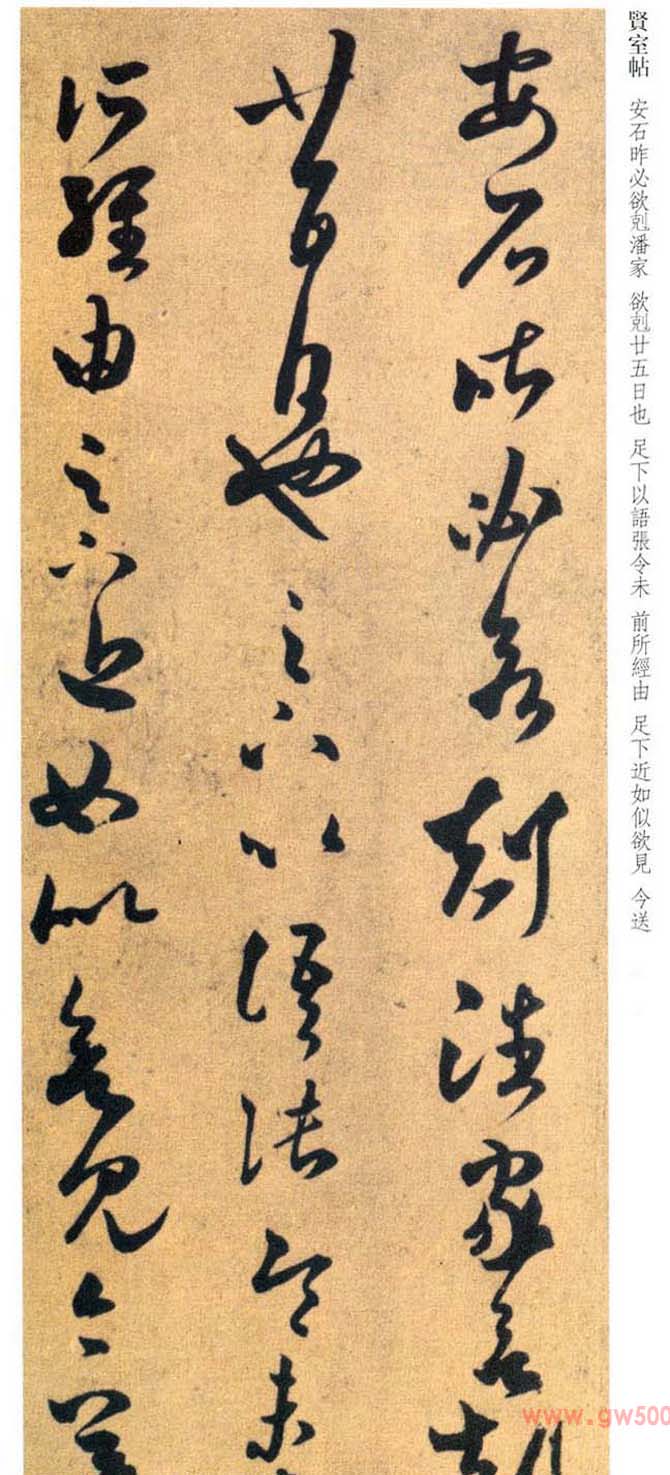 賢室帖 安石昨必欲剋潘家 欲剋廿五日也 足下以語張令未 前所經由 足下近如似欲見 今送
安石昨必欲剋潘家欲剋
廿五日也足下以語張令未
所經由足下近如似欲見今送
www.gw500